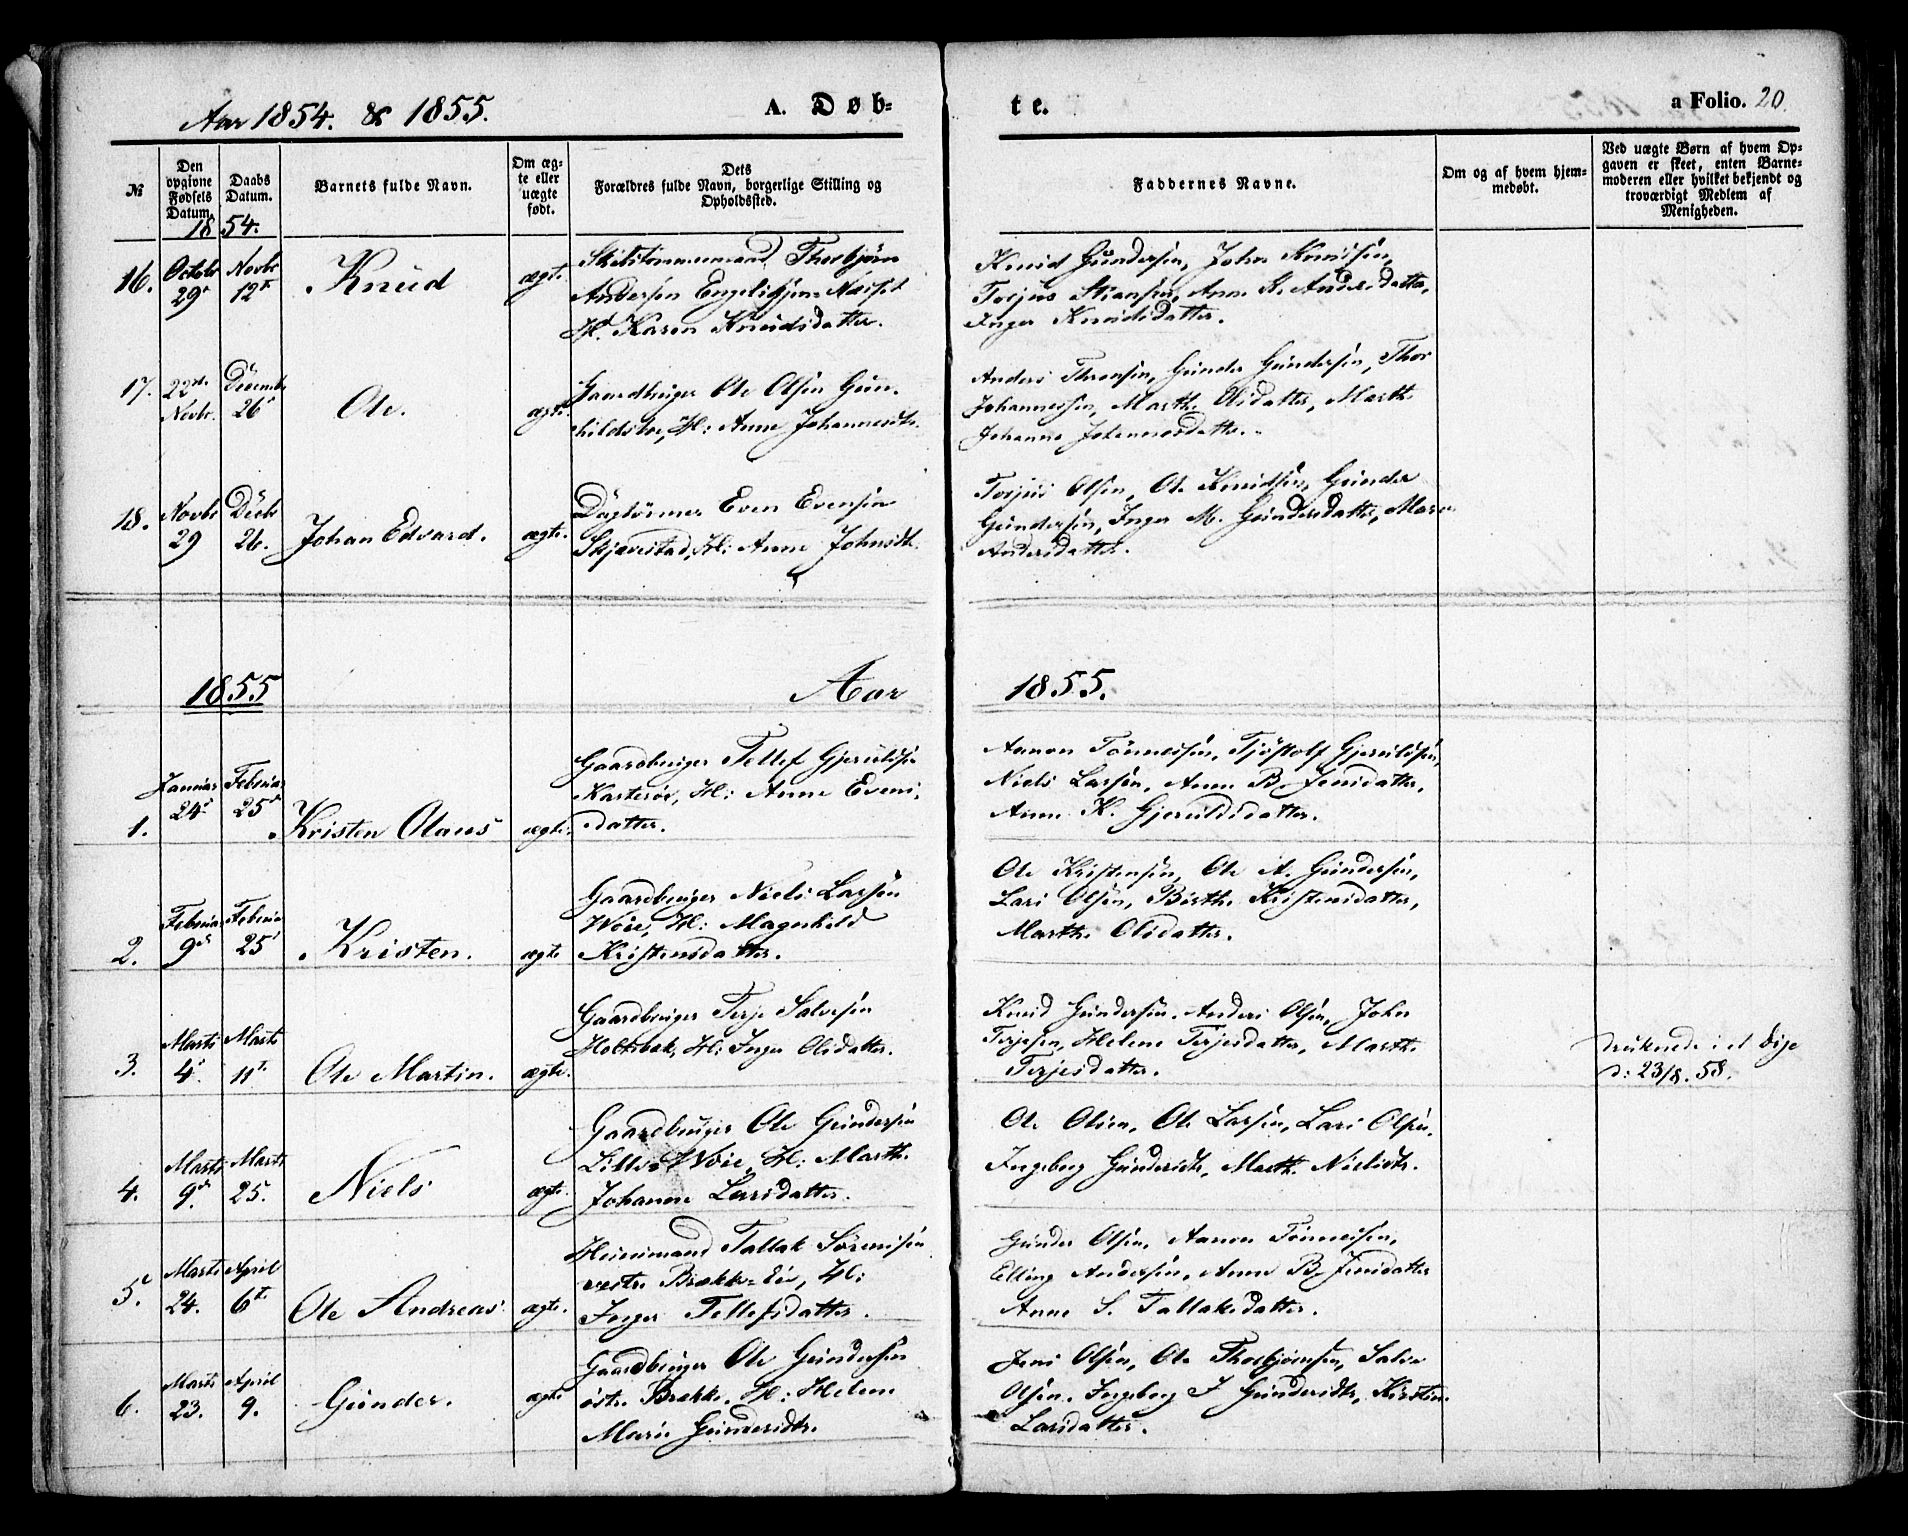 Aar 1854. & 1855.
A. Døb=
te.
a Folio. 20.
№
Den opgivne Fødsels Datum.
Daabs Datum.
Barnets fulde Navn.
Om ægte eller uægte født.
Dets Forældres fulde Navn, borgerlige Stilling og Opholdsted.
Faddernes Navne.
Om og af hvem hjemmedøbt.
Ved uægte Børn af hvem Opgaven er skeet, enten Barnemoderen eller hvilket bekjendt og troværdigt Medlem af Menigheden.
1854.
16. Octobr 29 Novbr 12t Knud ægte
Thorbjørn
Andersen
H. Karen Knudsdatter.
Knud Gundersen, John Knudsen,
Torjus Anne K. Andersdatter,
Inger Knudsdatter.
17. 22de Novbr. Decembr 26 Ole. ægte
Gaardbruger Ole Olsen Gun-
H: Anne Johannesdtr.
Anders Gunder Gundersen, Thor
Johannessen, Marthe Olsdatter, Marthe
Johanne Johannesdatter.
18. Novbr 29 Decbr 26. Johan Edvard. ægte.
Even Evensen
Skjævestad, H: Anne Johnsdtr.
Torjus Olsen, Ole Knudsen, Gunder
Gundersen, Inger M. Gundersdatter, Maren
Andersdatter.
1855
Aar
1855.
1. Januar 24 Februar 25 Kristen Olaus ægte.
Gaardbruger Tellef Gjeruldsen
H: Anne Evens-
datter.
Aanon Tønnesen, Tjøstolf Gjeruldsen,
Niels Larsen, Anne B. Jensdatter,
Anne K. Gjeruldsdatter.
2. Februar 9de Februar 25 Kristen. ægte
Gaardbruger Niels Larsen
Woie, H: Magnhild
Kristensdatter.
Ole Kristensen, Ole A. Gundersen,
Lars Olsen, Birthe Kristensdatter,
Marthe Olsdatter.
3. Marts 4. Marts 11t Ole Martin. ægte.
Gaardbruger Terje Salvesen
Holtebak, H: Inger Olsdatter.
Knud Gundersen, Anders Olsen, John
Terjesen, Helene Terjesdatter, Marthe
Terjesdatter.
druknede i et Dige
d: 23/8. 58.
4. Marts 9de. Marts 25. Niels ægte.
Gaardbruger Ole Gundersen
Lille Woie, H: Marthe
Johanne Larsdatter.
Ole Olsen, Ole Larsen, Lars Olsen,
Ingeborg Gundersdtr, Marthe Nielsdtr.
5. Marts 24. April 6t Ole Andreas ægte.
Huusmand Tallak Sørensen
vestre Brække-Eie, H:
Inger Tellefsdatter.
Gunder Olsen, Aanon Tønnesen,
Elling Andersen, Anne B. Jensdatter
Anne S. Tallaksdatter.
6. Marts 23. April 9. Gunder. ægte
Gaardbruger Ole Gundersen
østre Brække, H: Helene
Marie Gundersdtr.
Jens Olsen, Ole Thorbjørnsen, Salve
Olsen, Ingeborg J Gundersdtr, Kirstine
Larsdatter.